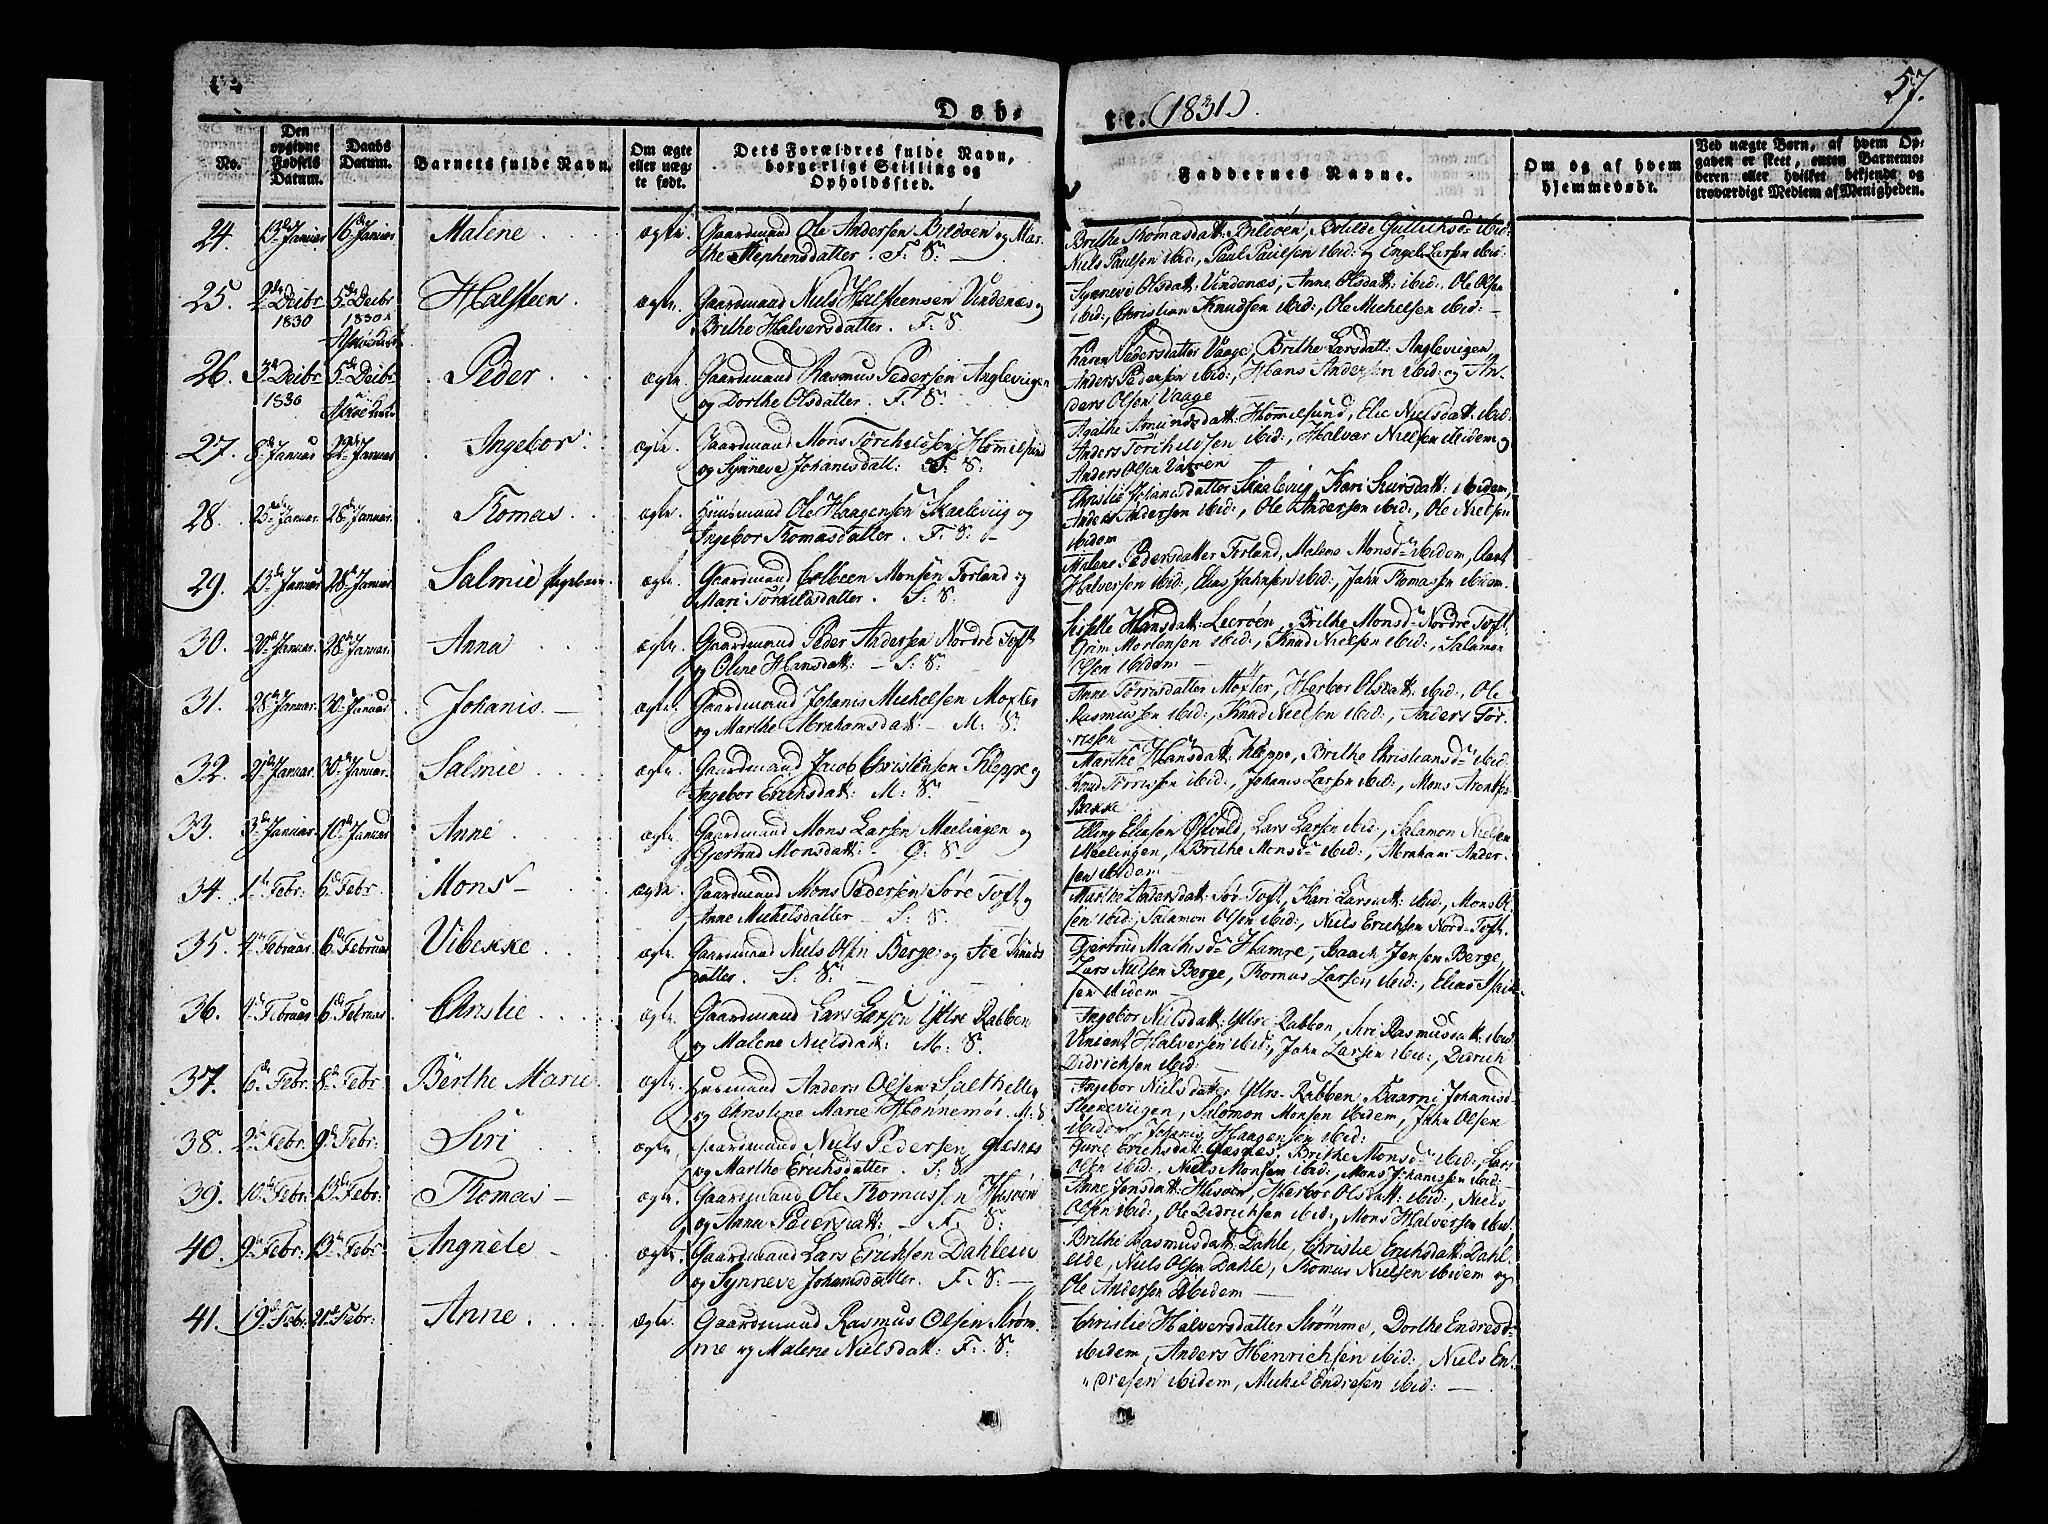 57.
Døb-
te. (1831).
No.
Den
opgivne
Fødsels
Datum.
Daabs
Datum.
Barnets fulde Navn.
Om ægte
eller næg-
te født.
Dets Forældres fulde Navn,
borgerlige Stilling og
Opholdssted.
Faddernes Navne.
Om og af hvem
hjemmedøbt.
Ved nægte Børn, af hvem Op-
gaven er skeet, enten Barnemo-
deren eller hvilket bekjendt og
troværdigt Medlem af Menigheden.
24. 13de Januar 16de Januar Malene ægte. Gaardmand Ole Andersen Bildøen og Mar-
the Stephensdatter. F: S:
Brithe Thomasdatt: Bildøen, Botilde Gullichsdr ibid:
Niels Paulsen ibid:, Paul Paulsen ibid: og Engel Larsen ibid:
25. 2de Decbr 1830 5te Decbr 1830 i Halsteen ægte. Gaardmand Niels Halsteensen Vindenæs og
Brithe Halversdatter. F: S:
Synneve Olsdatt: Vindenæs, Anna Olsdatt: ibid:, Ole Olsen
ibid:, Christian Knudsen ibid:, Ole Michelsen ibid:
26. 3de Decbr 1830 5te Decbr Peder ægte. Gaardmand Rasmus Pedersen Anglevigen
og Dorthe Olsdatter. F: S:
Karen Pedersdatter Vaage, Brithe Larsdatt: Anglevigen
Anders Pedersen ibid:, Hans Andersen ibid: og An-
ders Olsen Vaage
27. 8de Januar 22de Januar Ingebor ægte. Gaardmand Mons Torchelsen Hommelsund
og Synneve Johanisdatt: S: S:
Agathe Amundsdatt: Hommelsund, Elie Nielsdatt: ibid:
Anders Torchelsen ibid:, Halvar Nielsen ibidem og
Anders Olsen
28. 25de Januar. 28de Januar. Thomas ægte. Huusmand Ole Haagensen Skaleviig og
Ingebor Thomasdatter. F: S:
Christie Johansdatter Skaleviig, Kari Siursdatt: ibidem,
Anders Andersen ibid:, Ole Andersen ibid:, Ole Nielsen
ibidem
29. 13de Januar 28de Januar Salmie ægte. Gaardmand Colbeen Monsen Forland og
Mari S: S:
Malene Pedersdatter Forland, Malene Monsdr ibidem,
Halversen ibid:, Elias Jahnsen ibid:, John Thomassen ibidem.
30. 20de Januar. 28de Januar. Anna ægte. Gaardmand Peder Andersen Nordre Toft
og Oline Hansdatt: S: S:
Hansdatt: Lerøen, Brithe Monsdr Nordre Toft
Grim Mortensen ibid:, Knud Nielsen ibid:, Salamon
Olsen ibidem
31. 28de Januar. 30de Januar Johanis. ægte. Gaardmand Johanis Michelsen Moxter
og Marthe Abrahamsdatt: M: S:
Anne Torrisdatter Moxter, Herbor Olsdatt: ibid:, Ole
Rasmussen ibid:, Knud Nielsen ibid:, Anders Tor-
rissen
32. 21de Januar. 30de Januar. Salmie ægte. Gaardmand Jacob Christensen Kleppe og
Ingebor Erichsdatt: M: S:
Marthe Hansdatt: Kleppe, Brithe Christiansdr ibid:
Knud Torrissen ibid:, Johanis Larsen ibid:, Mons Arentsen
Bakke
33. 3de Januar. 10de Januar Anne ægte. Gaardmand Mons Larsen Meelingen og
Gjertrud Monsdatt: Ø: S:
Elling Eliasen Østvold, Lars Larsen ibid:, Salamon Nielsen
Meelingen, Brithe Monsdr ibid:, Abraham Ander-
sen ibidem
34. 1de Febr. 6de Febr. Mons ægte. Gaardmand Mons Pedersen Søre Toft og
Anne Michelsdatter S: S:
Marthe Andersdatt: Sør-Toft, Kari Larsdatt: ibid:, Mons Ol-
sen ibid:, Salamon Olsen ibid:, Niels Erichsen Nord-Toft
35. 4de Februar. 6de Februar Vibekke ægte. Gaardmand Niels Olsen Berge og Knuds
datter. S: S:
Gjertrud Mathisdr Hamre, Isaach Jensen Berge,
Lars Nielsen Berge, Thomas Larsen ibid:, Elias
sen ibidem
36. 4de Februar 6de Februar Christie ægte. Gaardmand Lars Larsen Yttre Rabben
og Malene Nielsdatt: M: S:
Ingebor Nielsdatt: Yttre Rabben, Siri Rasmusdatt: ibid:
Vincent Halversen ibid:, John Larsen ibid:, Didrich
Didrichsen ibid:
37. 6de Febr. 8de Febr. Berthe Marie ægte. Husmand Anders Olsen Salthella
og Christine Marie Honnemor. M: S
Ingebor Nielsdatter Yttre-Rabben, Baarni Johanisd-
Steneviigen, Salomon Monsen ibidem, John Olsen
ibidem, Johanis Haagensen ibid:
38. 2de Febr. 9de Febr: Siri ægte. Gaardmand Niels Pedersen Glesnæs
og Marthe Erichsdatter. S: S:
Gurie Erichsdatt: Glesnæs, Brithe Monsdr ibid:, Lars
Olsen ibid:, Niels Monsen ibid:, Mons Johanissen ibid:
39. 10de Febr: 13de Febr: Thomas ægte. Gaardmand Ole Thomassen Hisøen
og Anna Pedersdatt: F: S:
Anne Jensdatt: Hisøen, Herbor Olsdatt: ibid:, Niels
Olsen ibid:, Ole Didrichsen ibid:, Mons Halversen ibid:
40. 9de Febr: 13de Febr Angnete ægte. Gaardmand Lars Erichsen Dahleide
og Synneve Johanisdatter. F: S:
Brithe Rasmusdatt: Dahle, Christie Erichsdatt: Dahl-
eide, Niels Olsen Dahle, Thomas Nielsen ibidem og
Ole Andersen ibidem
41. 19de Febr. 21de Febr: Anne ægte. Gaardmand Rasmus Olsen Strøm-
me og Malene Nielsdatt: F: S:
Christie Halversdatter Strømme, Dorthe Endresd-
ibidem, Anders Henrichsen ibid:, Niels En-
dresen ibidem, Michel Endresen ibid: